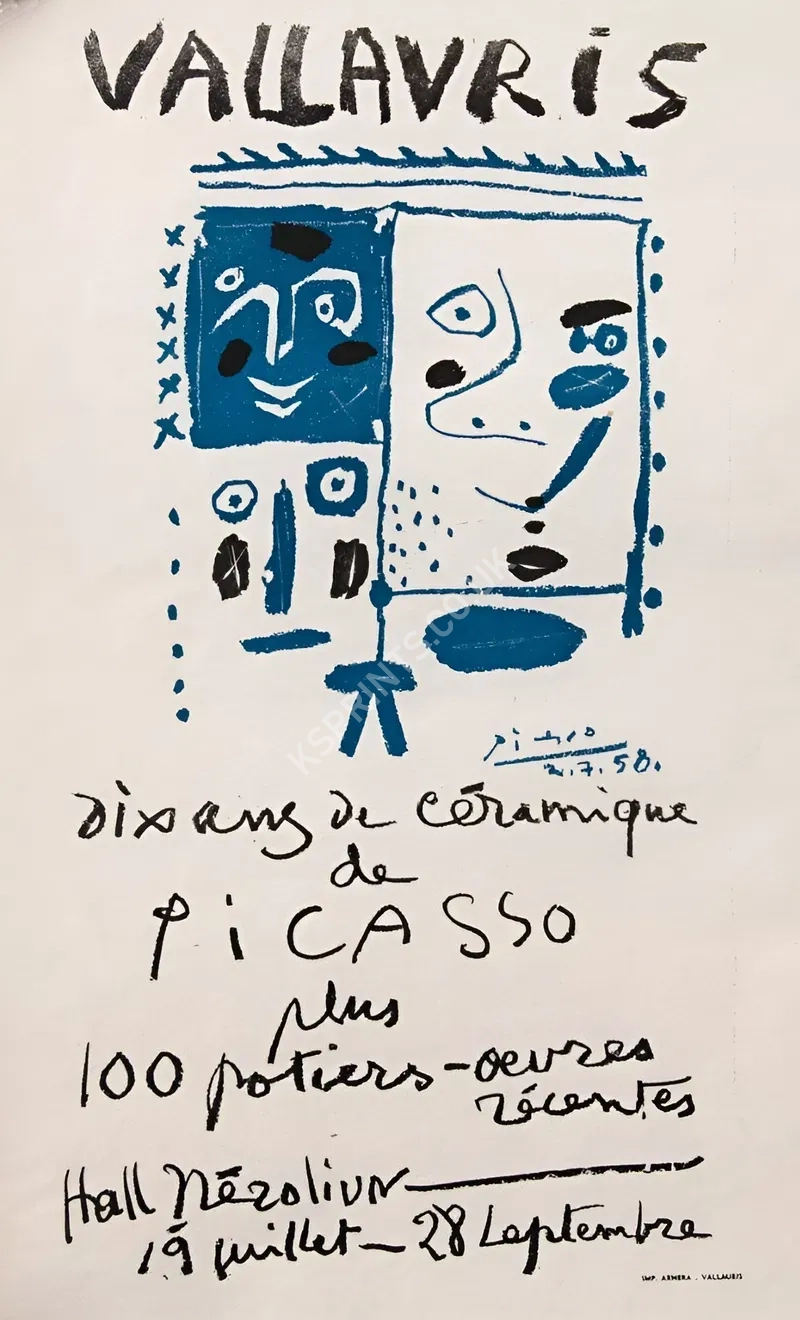 VALLAURIS
Picasso
2.7.58.
Dix ans de céramique
de
PiCASSO
plus
100 potiers-oevres
récentes
Hall Nérolium
19 juillet - 28 Septembre
IMP. ARNERA . VALLAURIS
KSPRINTS.CO.UK